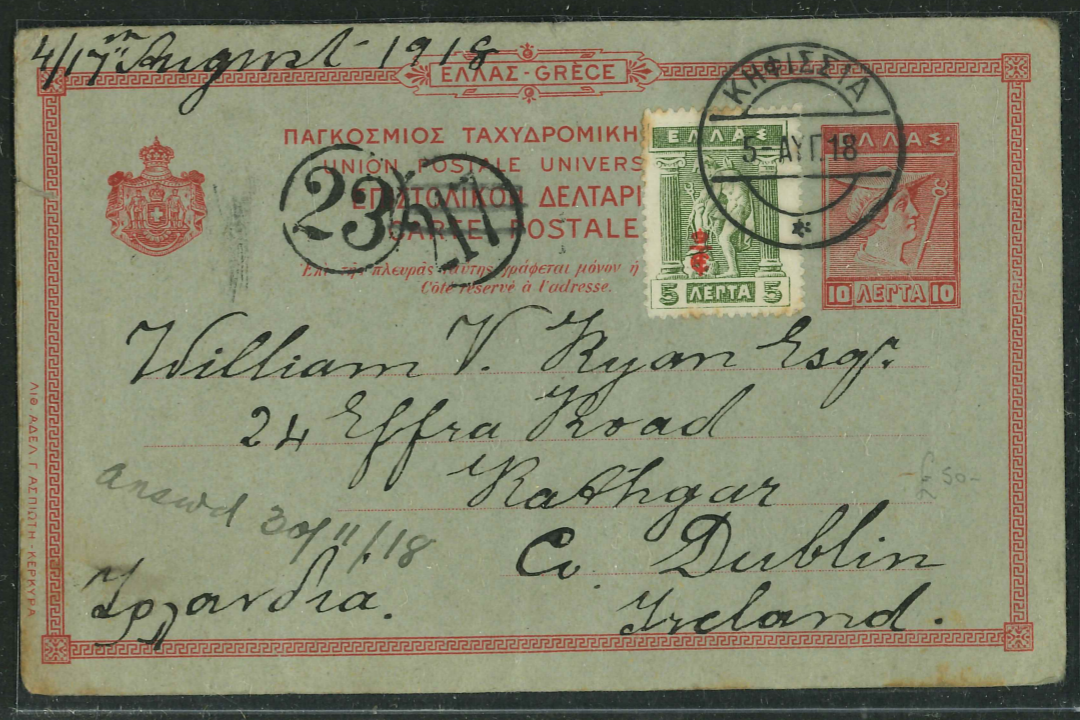 4/17th August 1918
ΕΛΛΑΣ-GRÈCE
ΚΗΦΙΣΣΙΑ
5-ΑΥΓ.18
*
ΠΑΓΚΟΣΜΙΟΣ ΤΑΧΥΔΡΟΜΙΚΗ
UNION POSTALE UNIVERS
ΕΠΙΣΤΟΛΙΚΟΝ ΔΕΛΤΑΡΙ
CARTE POSTALE
Ἐπὶ τῆς πλευρᾶς ταύτης γράφεται μόνον ἡ
Côté réservé à l'adresse.
23
ΕΛΛΑΣ
5 ΛΕΠΤΑ 5
ΕΛΛΑΣ
10 ΛΕΠΤΑ 10
William V. Ryan Esqr.
24 Effra Road
Rathgar
Co. Dublin
Ireland.
answd 30/11/18
Ιρλανδία.
50-
ΛΙΘ. ΑΔΕΛ. Γ. ΑΣΠΙΩΤΗ-ΚΕΡΚΥΡΑ